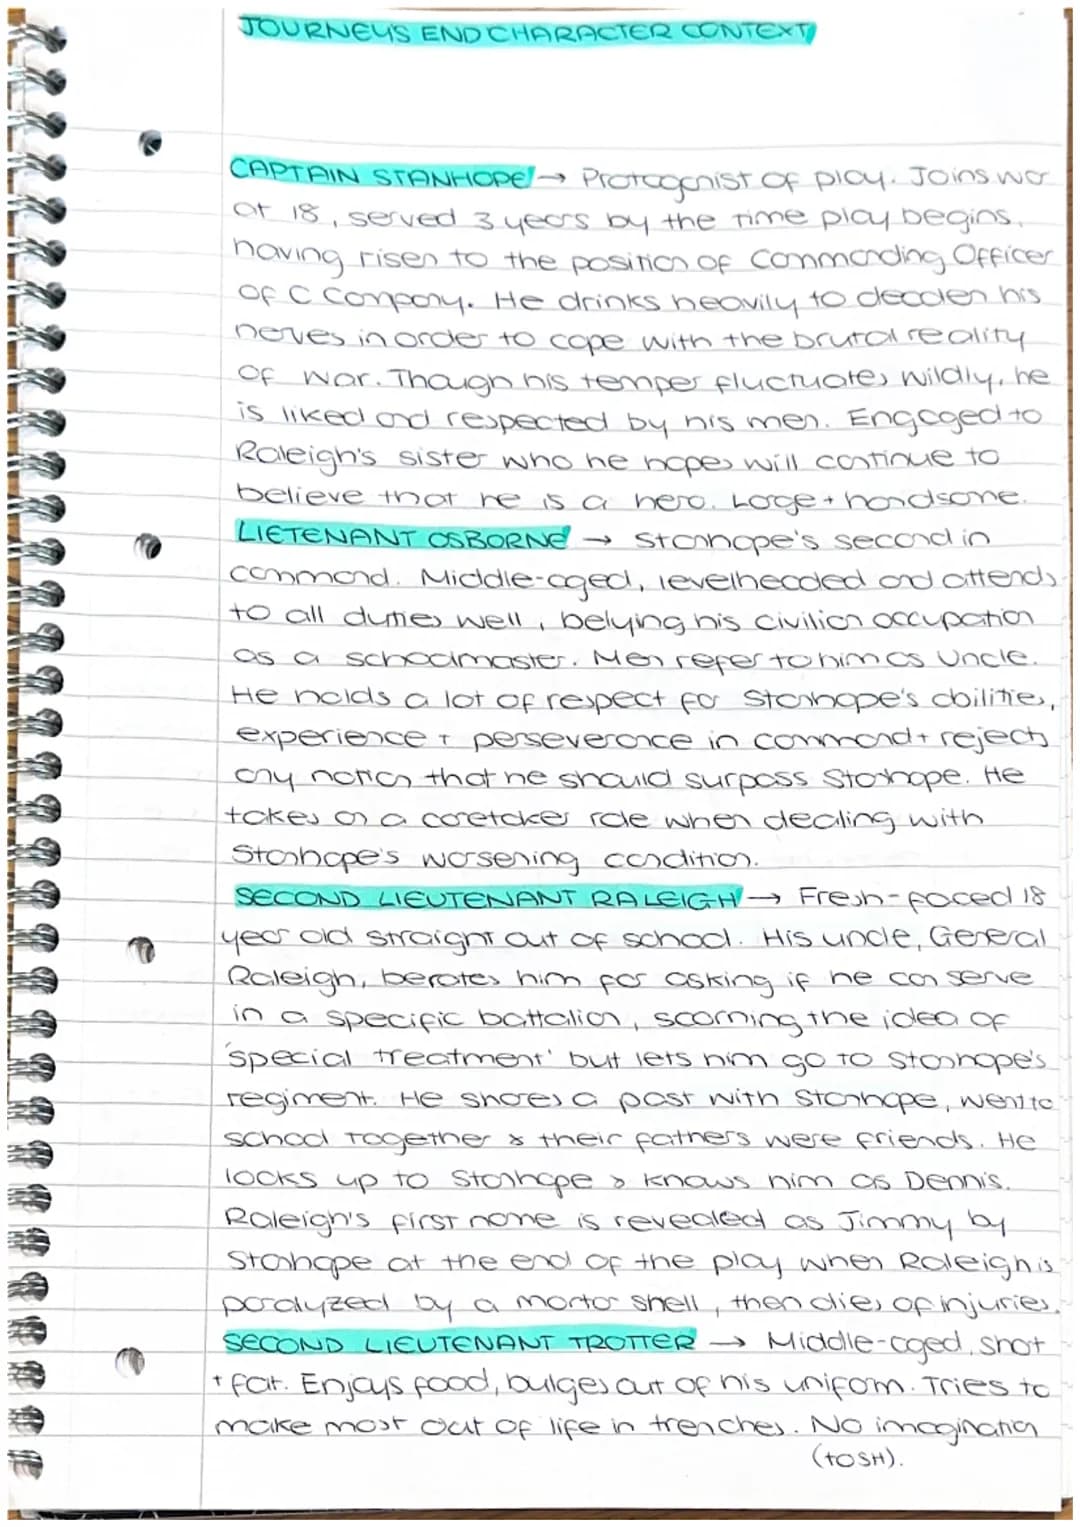 JOURNEY'S END CHARACTER CONTEXT
CAPTAIN STANHOPE → Protagonist of play. Joins war
at 18, served 3 years by the time play begins,
having risen to the position of Commanding Officer
of C Company. He drinks heavily to deaden his
nerves in order to cope with the brutal reality
of war. Though his temper fluctuates wildly, he
is liked and respected by his men. Engaged to
Raleigh's sister who he hopes will continue to
believe that he is a hero. Large + handsome.
LIETENANT OSBORNE → Stanhope's second in
command. Middle-aged, levelheaded and attends
to all duties well, belying his civilian occupation
as a schoolmaster. Men refer to him as Uncle.
He holds a lot of respect for Stanhope's abilities,
experience + perseverance in command + rejects
any notion that he should surpass Stanhope. He
takes on a caretaker role when dealing with
Stanhope's worsening condition.
SECOND LIEUTENANT RALEIGH → Fresh-faced 18
year old straight out of school. His uncle, General
Raleigh, berates him for asking if he can serve
in a specific battalion, scorning the idea of
'special treatment' but lets him go to Stanhope's
regiment. He shares a past with Stanhope, went to
school together & their fathers were friends. He
looks up to Stanhope & knows him as Dennis.
Raleigh's first name is revealed as Jimmy by
Stanhope at the end of the play when Raleigh is
paralyzed by a mortar shell, then dies of injuries.
SECOND LIEUTENANT TROTTER → Middle-aged, short
+ fat. Enjoys food, bulges out of his uniform. Tries to
make most out of life in trenches. No imagination
(TOSH).